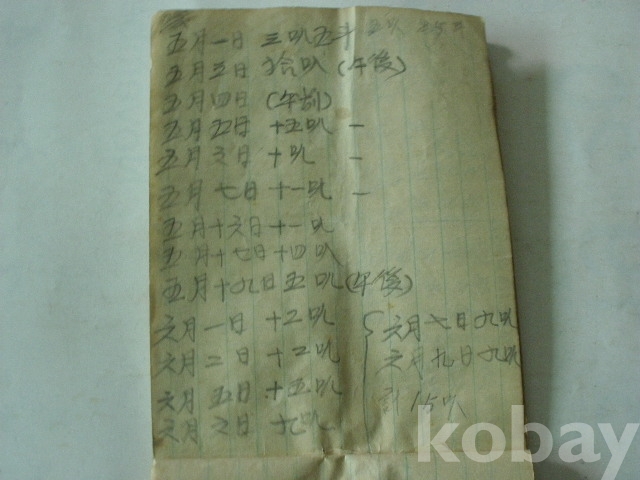 五月一日 三叺五斗
五月三日 拾叺(午後)
五月四日 (午前)
五月五日 十五叺 一
五月六日 十叺 一
五月七日 十一叺 一
五月十六日 十一叺
五月十七日 十四叺
五月十九日 五叺(午後)
六月一日 十二叺
六月二日 十二叺
六月五日 十五叺
六月六日 十九叺
六月七日 九叺
六月九日 九叺
計
kobay